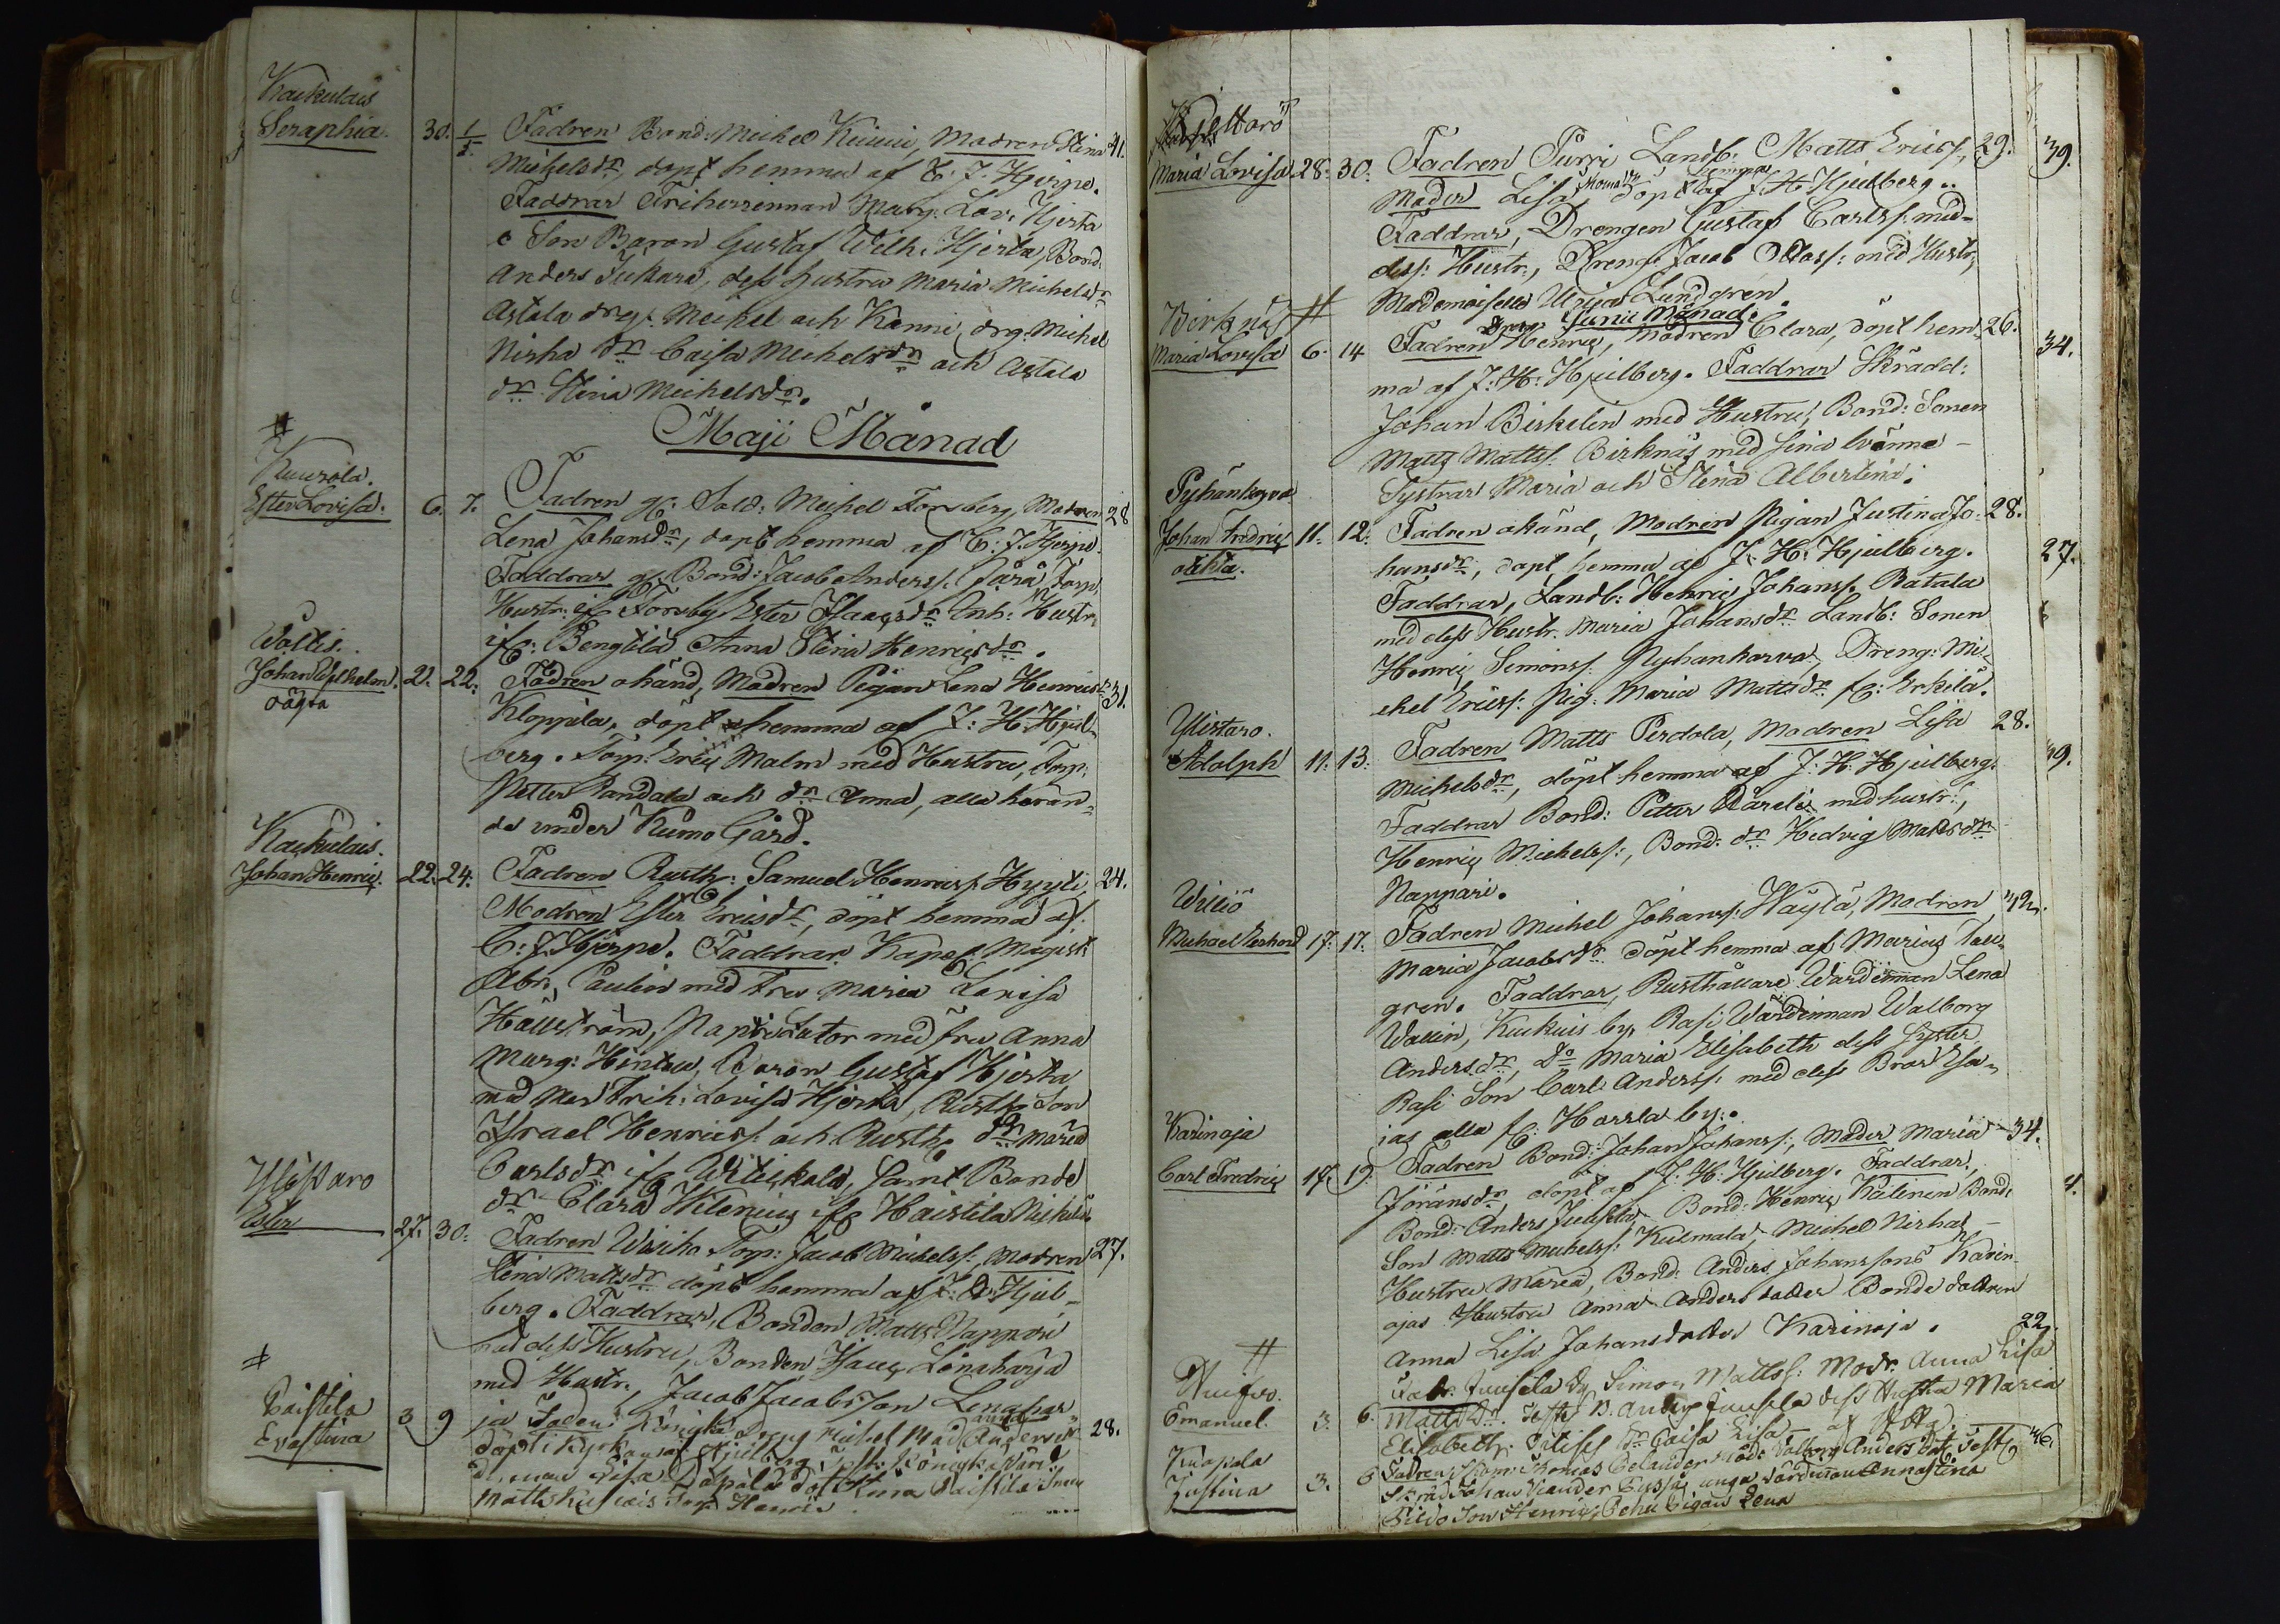 Kaukulais
Seraphia. 30. 1/5. Fadren Bond: Michel Keiuu, Madren Stina 41.
Michelsdr, döpt hemma af C. J. Hjerpe.
Faddrar Friherrinnan Marg: Lov: Hjerta
o Son Baron Gustaf Wilh: Hjerta, Bond:
Anders Tukkari, dess hustru Maria Michelsdr
Astala drg: Michel och Kanni, drg. Michel
Nisha dr Caisa Michelsdr och Astala
dr Stina Michelsdr.
Maji Månad
#
Kuurola.
Ester Lovisa. 6. 7. Fadren gf: Sold: Michel Forsberg, Modren 28
Lena Johansdr, döpt hemma af C: J. Hjerpe.
Faddrar gf. Bond: Jacob Anderss. Torp.
Hustr. if. Forsby Ester Isaacsdr Enh: Hustr.
if: Bengtilä Anna Stina Henricsdr.
Voltis.
Johan Wilhelm. 21. 22. Fadren okänd, Madren Pigan Lena Henricsdr 31.
oägta
Kloppila, döpt hemma af J: H. Hjul-
berg. Torp: Eric Malm med Hustru, Torp.
Petter Randala och dr Anna, alla höran-
de under Kumo Gård.
Kaukulais.
Johan Henric. 22. 24. Fadren Rusth: Samuel Henricss. Hyyti, 24.
Modren Ester Ericsdr, döpt hemma af
C: J. Hjerpe. Faddrar Kapel: Magist:
Abr. Paulin med fru Maria Lovisa
Hällström, med fru Anna
Marg: Baron Gustaf Hjerta
med Frih: Lovisa Hjerta, Rusth: Son
Israel Henricss. och Rusth: dr Maria
Carlsdr if. Wittikala, samt Bonde
dr Clara Wilenius if. Haistila
Ylistaro
Ester 27. 30. Fadren Wuiho Torp: Jacob Michelss: Modren 27.
Stina Mattsdr döpt hemma af J: H. Hjul-
berg. Faddrar, Bonden Matts Nappari
med dess Hustru, Bonden Isaac Lönaharja
med Hustr. Jacob Jacobsson Lenahar
#
Paistila
Evastina 3 9 ja Faden Köngikä Dreng Michel Mod Anna Andersdr 28.
döpt i Kyrkan af Hjulberg Test:
Lisa dot Stina Paistila
Matts Torp Henric
Kjettarö
Maria Lovisa. 28. 30. Fadren Purri Landb: Matts Ericss, 29. 39.
Mader Lisa Thomasdr döpt hemma af J. H. Hjulberg.
Faddrar, Drengen Gustaf Carlss: med
dess: Hustr., Dreng. Jacob Mass: med Hustr,
Mademoiselle Ulrica Lundgren.
Junii Månad.
Birknäs #
Maria Lovisa 6. 14 Fadren Dreng Henric, Madren Clara, döpt hem- 26. 34.
ma af J: H: Hjulberg. Faddrar Skrädd:
Johan Birkelin med Hustru, Bond: Sonen
Matts Mattss. Birknäs med sina tvänne
Systrar Maria och Stena Albertina.
Pyhänkorva
Johan Fredric 11. 12. Fadren okänd, Modren Pigan Justina Jo- 28. 27.
oäkta.
hansdr, döpt hemma af J: H: Hjulberg.
Faddrar, Landb: Henric Johanss. Ratala
med dess Hustr. Maria Johansdr Landb: Sonen
Henric Simonss. Pyhankorva, Dreng: Mi-
chel Ericss: Pig. Maria Mattsdr if: Erkilä.
Ylistaro.
Adolph 11. 13. Fadren Matts Perdola, Modren Lisa 28. 39.
Michelsdr, döpt hemma af J: H: Hjulberg.
Faddrar Bond: Petter med hustr.,
Henric Michelss:, Bond: dr Hedvig Mattsdr
Nappari.
Wilio
Michael Gerhard 17. 17. Fadren Michel Johanss: Wäytä, Modren 42.
Maria Jacobsdr döpt hemma af Marius Tau-
gren. Faddrar, Rusthållare Wärdinnan Lena
Wallin, Kukuis by, Rasi Wärdinnan Walborg
Andersdr, Do Maria Elisabeth dess Syster,
Rasi Son Carl Anderss: med dess Bror Esa-
ias alla if: Harsla by.
Karinoja
Carl Fredric 17. 19. Fadren Bond: Johan Johanss:, Mader Maria 34. 4.
Jöransdr döpt af J. H. Hjulberg. Faddrar,
Bond: Anders Juusela, Bond: Henric Kailinen Bond:
Son Matts Michelss: Kulmala, Michel Nirhas
Hustru Maria, Bond: Anders Johanssons Karin-
ojas Hustru Anna Anders dotter Bonde dottren
Anna Lisa Johansdotter Karinoja.
#
Emanuel. 3. 6. Fadr. Juusela Dr Simon Mattss: Modr. Anna Lisa 22.
Mattsdr. Test B. Anders Juusela dess Hustru Maria
Elisabeth: dr Caisa Lisa
Knapala
Justina 3. 6 Fadren Thomas Celander Mod: Valborg Andersdot. Test 46.
Skräd Johan unga värdinnan Anna Stina
Son Henric, Pigan Lena